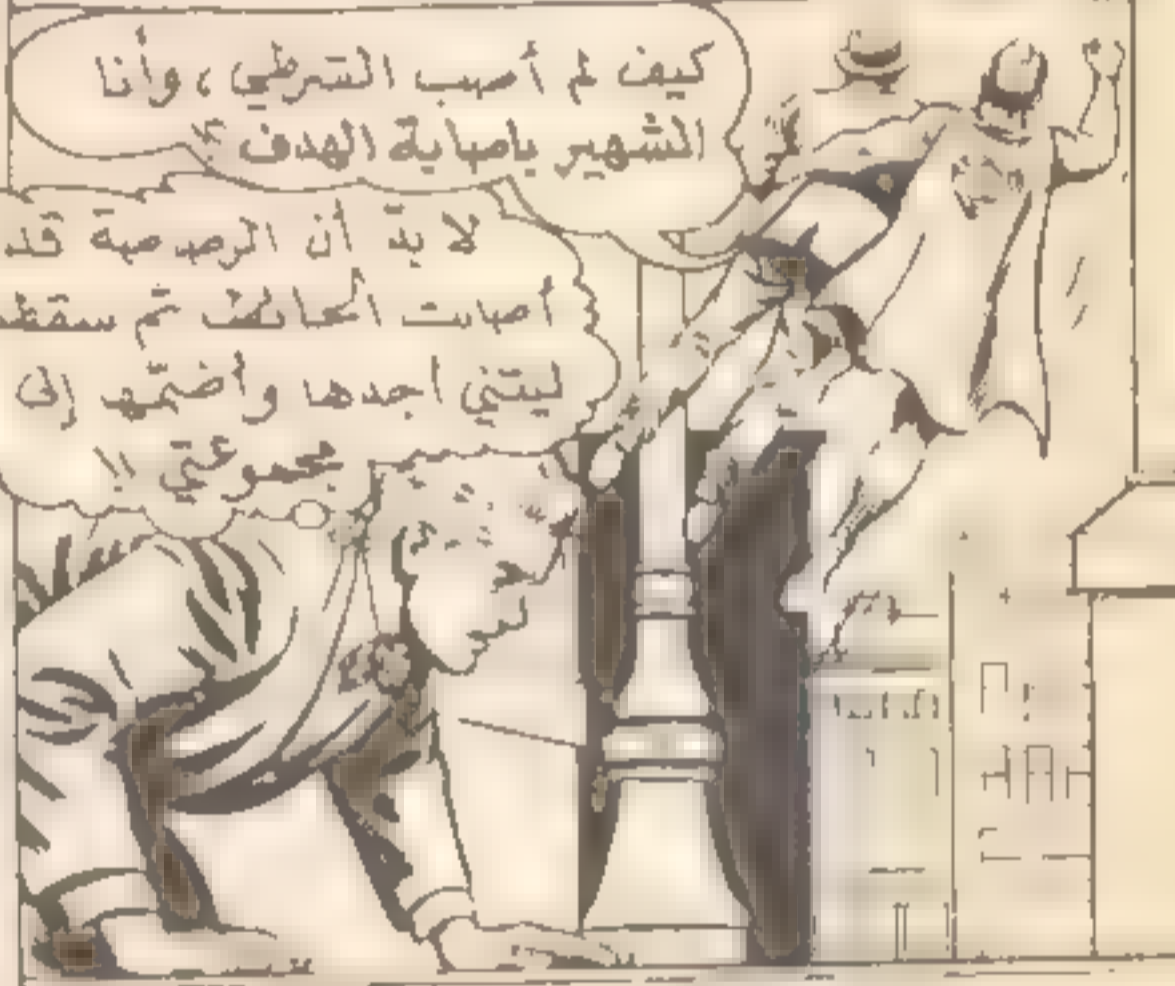 كيف لم أصب الشرطي، وأنا
الشهير بإصابة الهدف؟
لا بدّ أن الرصاصة قد
أصابت الحائط ثم سقطت
ليتني أجدها وأضمّها إلى
مجموعتي !!